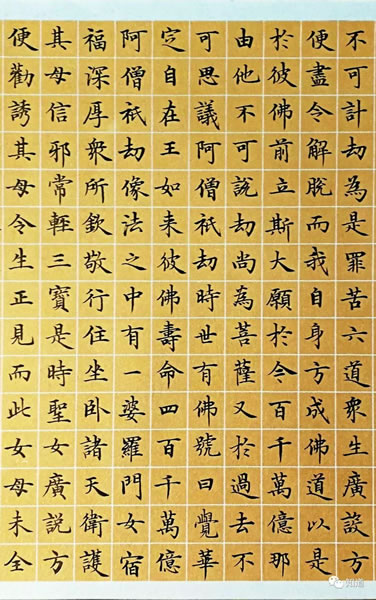 不可計劫為是罪苦六道衆生廣設方
便盡令解脫而我自身方成佛道以是
於彼佛前立斯大願於今百千萬億那
由他不可說劫尚為菩薩又於過去不
可思議阿僧祇劫時世有佛號曰覺華
定自在王如来彼佛壽命四百千萬億
阿僧祇劫像法之中有一婆羅門女宿
福深厚衆所欽敬行住坐卧諸天衛護
其母信邪常輕三寶是時聖女廣說方
便勸誘其母令生正見而此女母未全